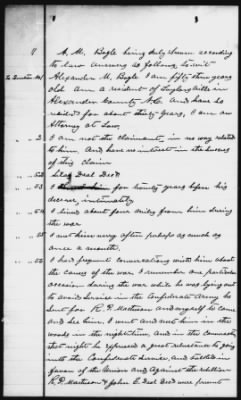 A. M. Bogle being duly sworn according
to law answers as follows, to wit
To Question No 1 Alexander M. Bogle I am fifty three years
old am a resident of Taylorsville in
Alexander County N.C. And have so
resided for about thirty years, I am an
Attorney at Law
" " 2 I am not the claimant, in no way related
to him. And have no interest in the success
of this claim
" " 52 Silas Deal Decd
" " 53 I for twenty years before his
decease, intimately
" " 54 I lived about four miles from him during
the war
" " 55 I met him very often perhaps as much as
once a month.
" " 56 I had frequent conversations with him about
the causes of the war. I remember one particular
occasion during the war while he was lying out
to avoid service in the Confederate Army he
sent for R. P. Matheson and myself to come
and see him. I went and met him in the
woods in the night time, and in the conversa
that night he expressed a great reluctance to going
into the Confederate service, and talked in
favor of the Union and against the rebellion
R. P. Matheson & John E. Deal Decd were present